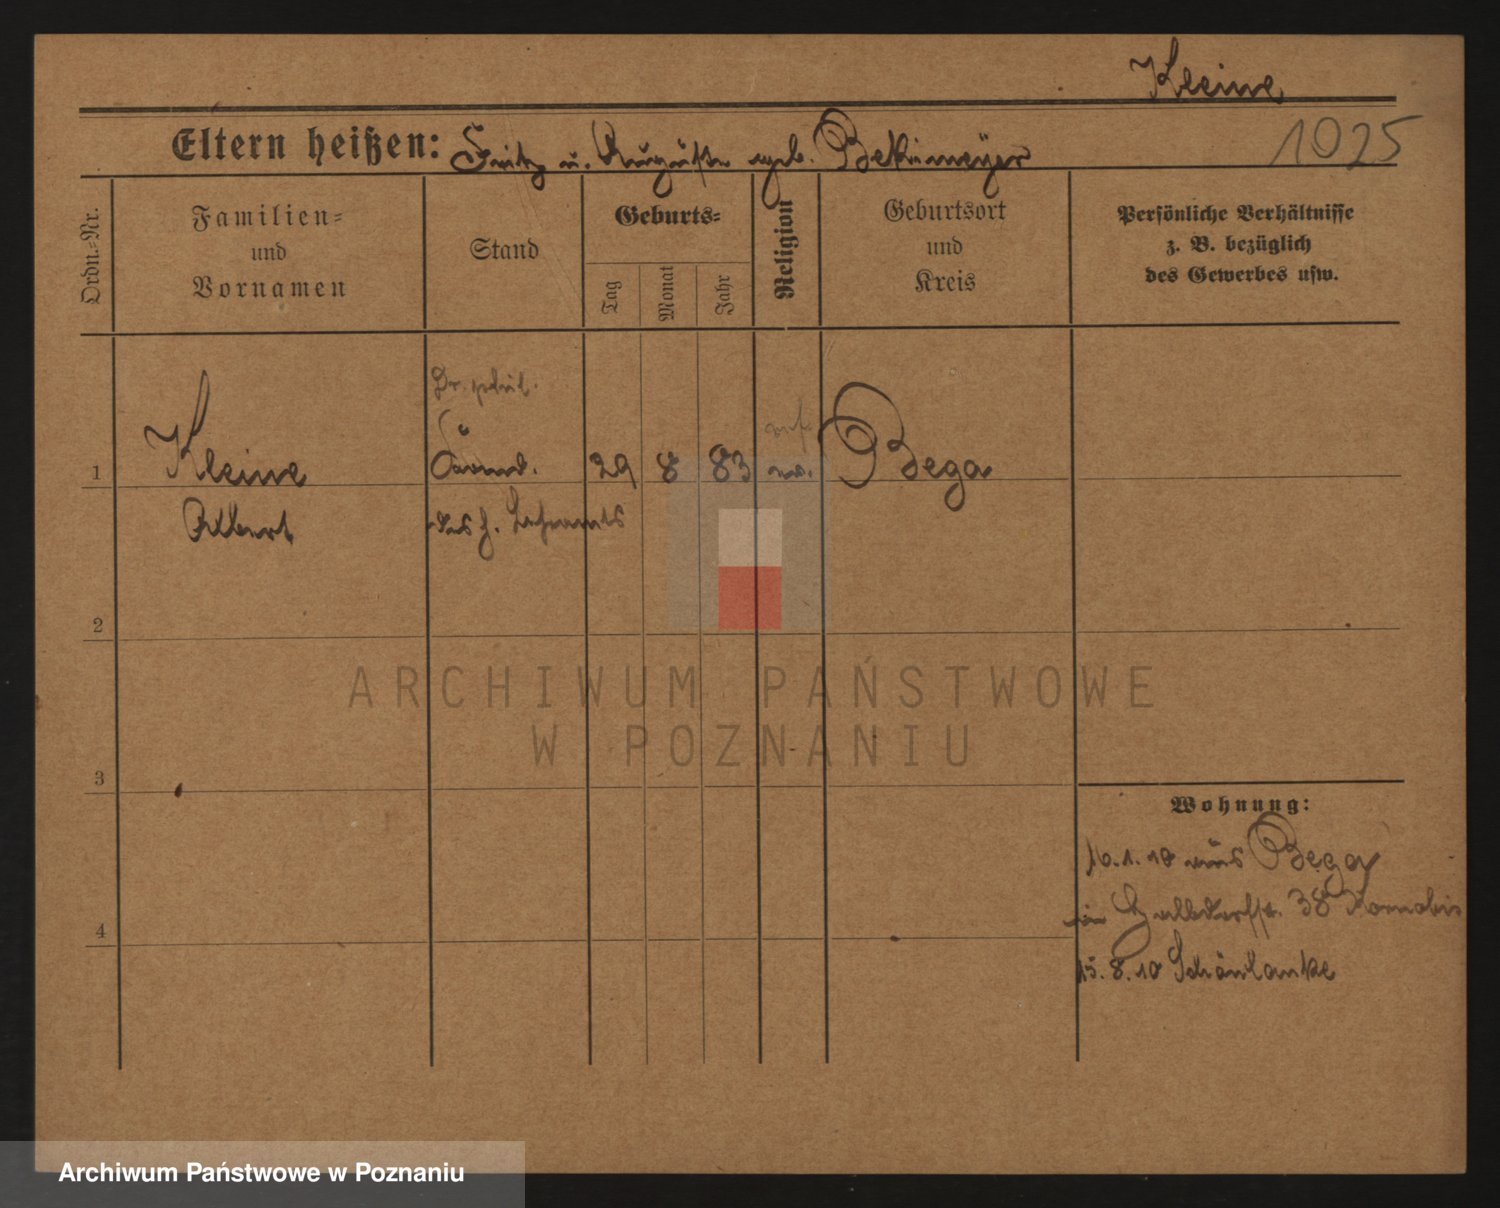 Kleine
1025
Eltern heißen: Fritz u. Auguste geb. Bekemeyer
Ordn.-Nr.
Familien-
und
Vornamen
Stand
Geburts-
Tag
Monat
Jahr
Religion
Geburtsort
und
Kreis
Persönliche Verhältnisse
z. B. bezüglich
des Gewerbes usw.
Dr. phil.
1 Kleine Kand. 29 8 83 Bega
Albert des h. Lehramts
2
ARCHIWUM PAŃSTWOWE
W POZNANIU
3
Wohnung:
16.1.10 aus Bega
in 38
4
15.8.10 Schönlanke
Archiwum Państwowe w Poznaniu